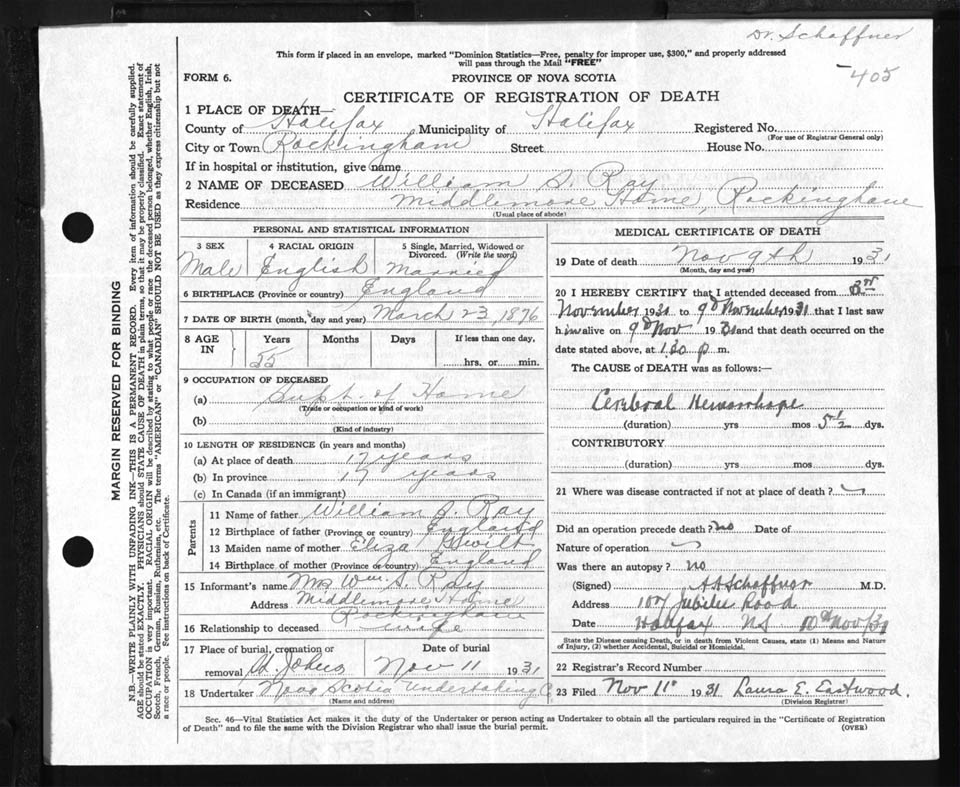 Dr. Schaffner
This form if placed in an envelope, marked "Dominion Statistics—Free, penalty for improper use, $300," and properly addressed
will pass through the Mail "FREE"
-405
FORM 6.
PROVINCE OF NOVA SCOTIA
CERTIFICATE OF REGISTRATION OF DEATH
1 PLACE OF DEATH—
County of Halifax Municipality of Halifax Registered No.
(For use of Registrar General only)
City or Town Rockingham Street House No.
If in hospital or institution, give name
2 NAME OF DECEASED William S. Ray
Residence Middlemore Home, Rockingham
(Usual place of abode)
PERSONAL AND STATISTICAL INFORMATION
3 SEX 4 RACIAL ORIGIN 5 Single, Married, Widowed or Divorced. (Write the word)
Male English Married
6 BIRTHPLACE (Province or country) England
7 DATE OF BIRTH (month, day and year) March 23, 1876
8 AGE IN Years Months Days If less than one day,
55 hrs. or min.
9 OCCUPATION OF DECEASED
(a) Supt. of Home
(Trade or occupation or kind of work)
(b)
(Kind of industry)
10 LENGTH OF RESIDENCE (in years and months)
(a) At place of death 17 years
(b) In province 17 years
(c) In Canada (if an immigrant)
Parents
11 Name of father William S. Ray
12 Birthplace of father (Province or country) England
13 Maiden name of mother Eliza
14 Birthplace of mother (Province or country) England
15 Informant's name Mrs Wm. S. Ray
Address Middlemore Home
Rockingham
16 Relationship to deceased wife
17 Place of burial, cremation or removal St. Johns Date of burial Nov 11 1931
18 Undertaker Nova Scotia Undertaking Co
(Name and address)
MEDICAL CERTIFICATE OF DEATH
19 Date of death Nov 9th 1931
(Month, day and year)
20 I HEREBY CERTIFY that I attended deceased from 3rd
November 1931 to 9th November 1931 that I last saw
him alive on 9th Nov 1931 and that death occurred on
date stated above, at 1.30 p m.
The CAUSE of DEATH was as follows:—
Cerebral Hemorrhage
(duration) yrs mos 5½ dys.
CONTRIBUTORY
(duration) yrs mos dys.
21 Where was disease contracted if not at place of death?
Did an operation precede death? no Date of
Nature of operation
Was there an autopsy? no
(Signed) A A Schaffner M.D.
Address 107 Jubilee Road
Date Halifax NS 10th Nov/31
State the Disease causing Death, or in death from Violent Causes, state (1) Means and Nature of
Injury, (2) whether Accidental, Suicidal or Homicidal.
22 Registrar's Record Number
23 Filed Nov 11th 1931 Laura E. Eastwood.
(Division Registrar)
Sec. 46—Vital Statistics Act makes it the duty of the Undertaker or person acting as Undertaker to obtain all the particulars required in the "Certificate of Registration
of Death" and to file the same with the Division Registrar who shall issue the burial permit.
(OVER)
MARGIN RESERVED FOR BINDING
N.B.—WRITE PLAINLY WITH UNFADING INK—THIS IS A PERMANENT RECORD. Every item of information should be carefully supplied.
AGE should be stated EXACTLY. PHYSICIANS should STATE CAUSE OF DEATH in plain terms, so that it may be properly classified. Exact statement of
OCCUPATION is very important. RACIAL ORIGIN will be described by stating to what people or race the deceased person belonged, whether English, Irish,
Scotch, French, German, Russian, Ruthenian, etc. The terms "AMERICAN" or "CANADIAN" SHOULD NOT BE USED as they express citizenship but not
a race or people. See instructions on back of Certificate.